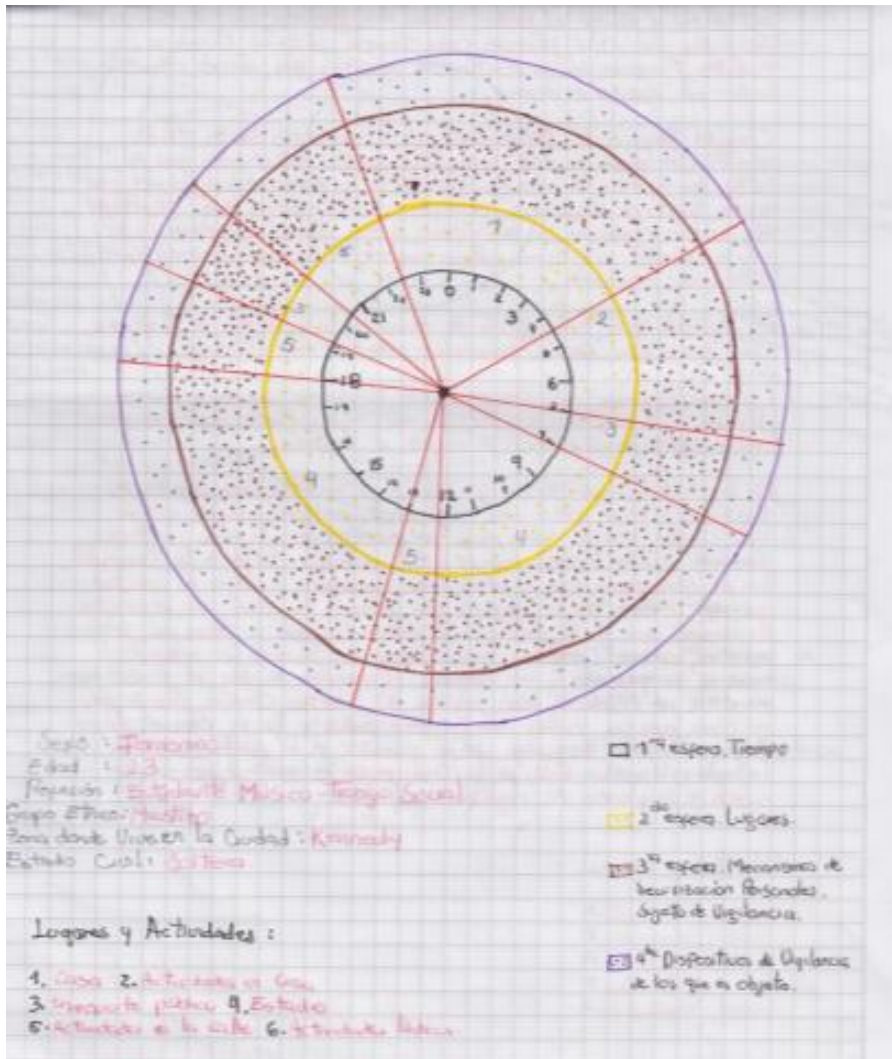 1
2
3
4
5
4
5
3
6
0
2
3
6
9
12
15
18
21
Sexo : Femenino
Edad : 23
Profesión : Estudiante Música - Trabajo Social
Grupo Étnico: Mestizo
Zona donde Vive en la Ciudad : Kennedy
Estado Civil: Soltera
Lugares y Actividades :
1. Casa 2. Actividades en Casa
3. Transporte público 4. Estudio
5. Actividades en la calle 6. Actividades lúdicas
1ra esfera. Tiempo
2da esfera. Lugares.
3ra esfera. Mecanismos de
Securitización Personales.
Sujeto de Vigilancia.
4ta Dispositivos de Vigilancia
de los que es objeto.